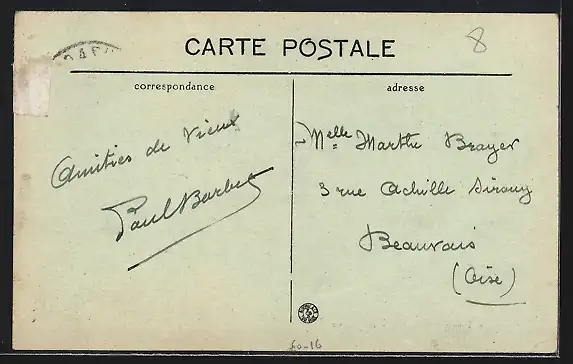 CARTE POSTALE
8
correspondance
adresse
Amitiés de Vieux
Paul Barbet
Melle Marthe Brayer
3 rue Achille Sirouy
Beauvais
(Oise)
60-16